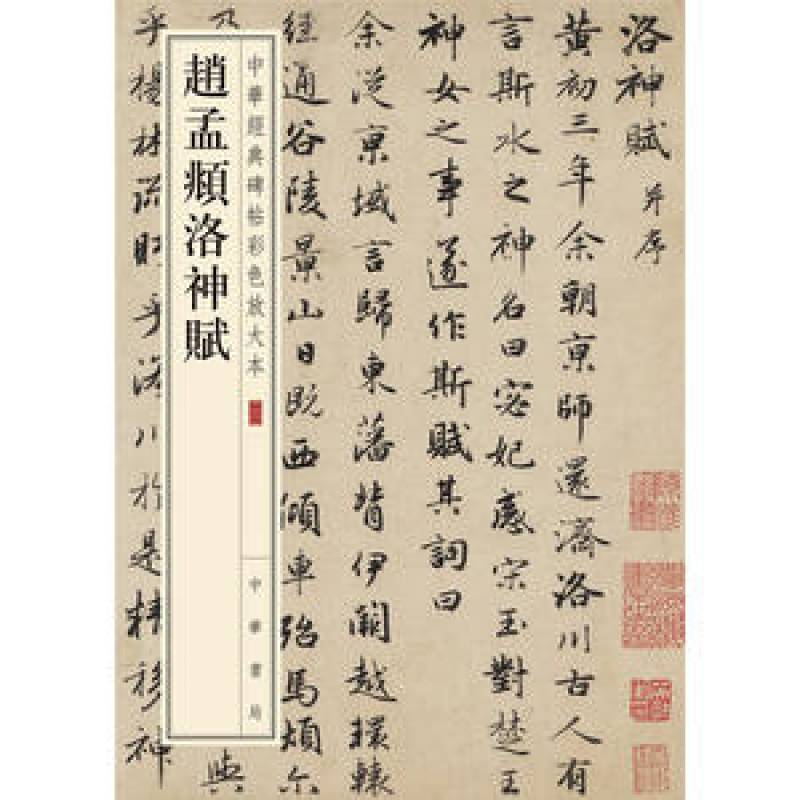 洛神賦 并序
黃初三年余朝京師還濟洛川古人有
言斯水之神名曰宓妃感宋玉對楚王
神女之事遂作斯賦其詞曰
余從京域言歸東藩背伊闕越轘轅
經通谷陵景山日既西傾車殆馬煩尔
乃
與
乎楊林流眄乎洛川於是精移神
中華經典碑帖彩色放大本
中華書局
趙孟頫洛神賦